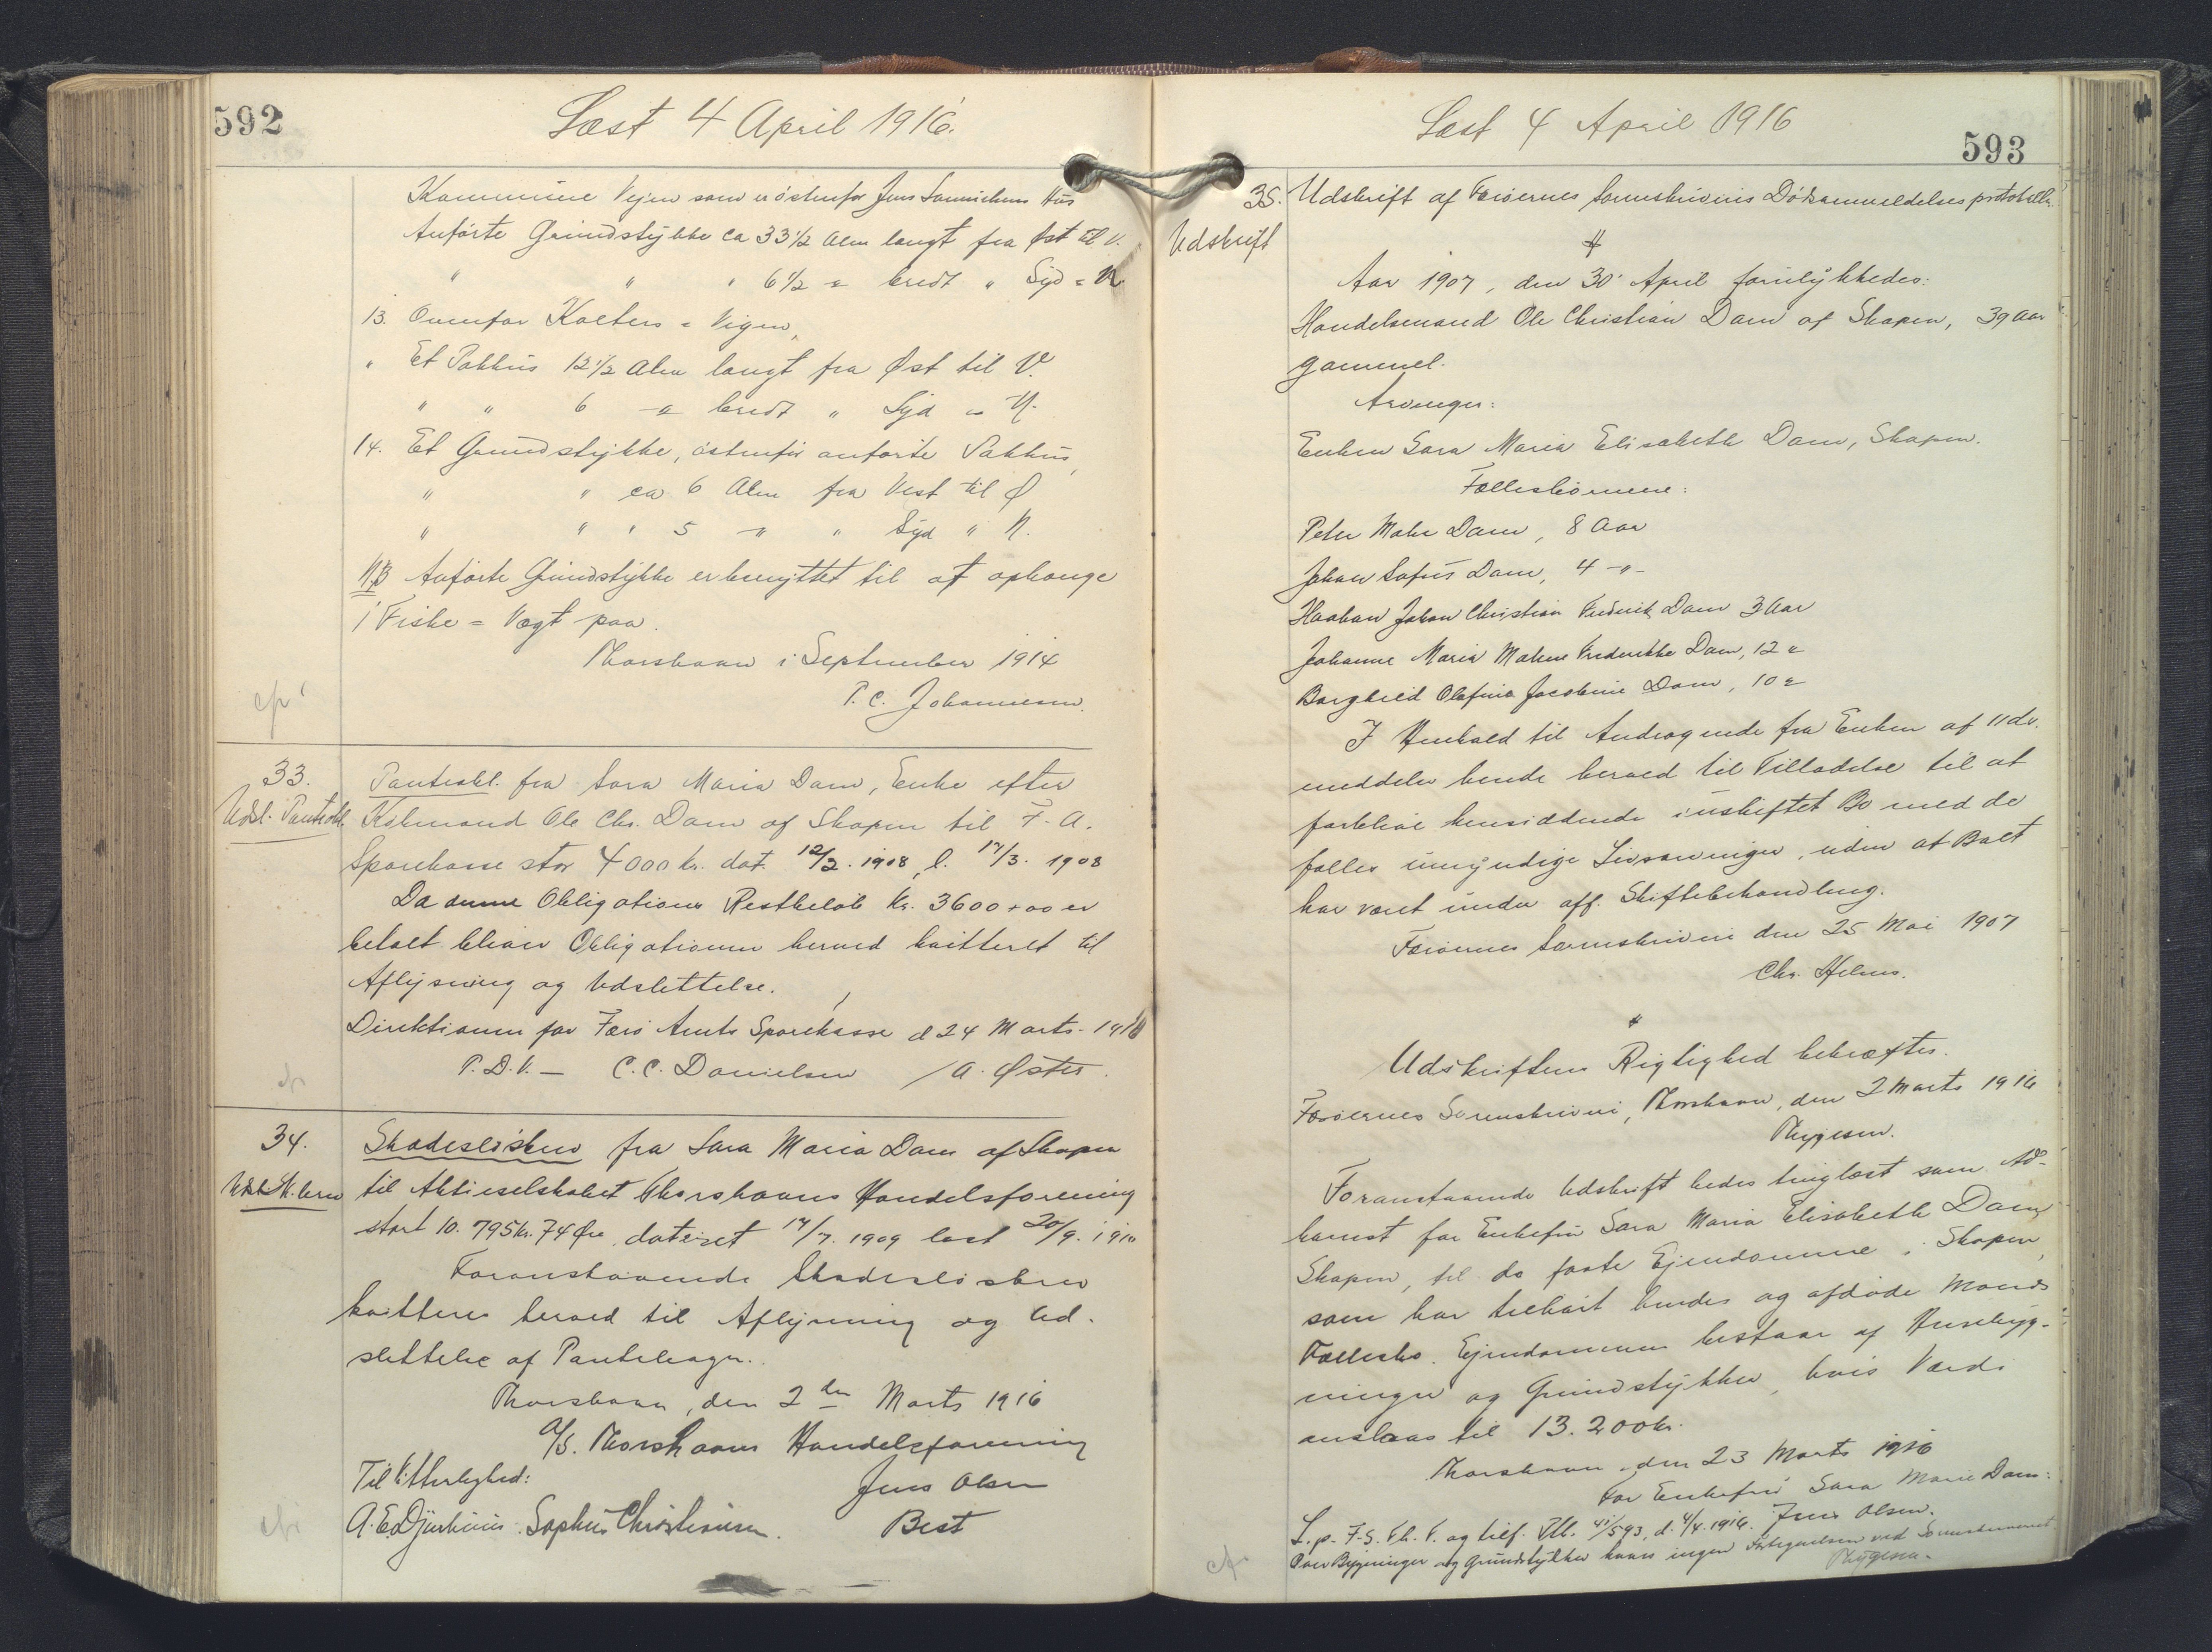 592
Læst 4 April 1916.
Kommune Vejen som er östenfor Jens Hus
Anförte Grundstykke ca 33½ Alen langt fra Øst til V.
" " " 6½ " bredt " Syd " N
13. Ovenfor Kolters = Vigen,
" Et Pakhus 12½ Alen langt fra Øst til V.
" " 6 -"- bredt " Syd " N.
14. Et Grundstykke, östenfor anförte Pakhus,
" " ca 6 Alen fra Vest til Ø
" " " 5 -"- " Syd " N.
NB Anförte Grundstykke er benyttet til at ophænge
1 Fiske = Vægt paa.
Thorshavn i September 1914
P. C. Johannesen.
33.
Udsl. Panteobl.
Panteobl. fra Sara Maria Dam, Enke efter
Købmand Ole Chr. Dam af Skopen til F. A.
Sparekasse stor 4000 Kr. dat. 12/2. 1908, l. 17/3. 1908
Da denne Obligations Restbeløb Kr. 3600,00 er
betalt bliver Obligationen herved kvitteret til
Aflysning og Udslettelse.
Direktionen for Færø Amts Sparekasse d 24 Marts 1916
P.D.V. — C.C. Danielsen / A. Øster.
34.
Udsl. Sk.brev
Skadesløsbrev fra Sara Maria Dam af Skopen
til Aktieselskabet Thorshavns Handelsforening
stort 10.795 Kr. 74 Øre dateret 14/7. 1909 læst 20/9. 1910
Foranstaaende Skadesløsbrev
kvitteres herved til Aflysning og Ud-
slettelse af Pantebogen.
Thorshavn, den 2den Marts 1916
A/S. Thorshavns Handelsforening
Til Vitterlighed:
Jens Olsen
A. E. Djurhuus. Sophus Christiansen.
Best
Læst 4 April 1916
593
35.
Udskrift
Udskrift af Færøernes Sorenskriveris Dödsanmeldelsesprotokoller.
Aar 1907, den 30' April forulykkedes:
Handelsmand Ole Christian Dam af Skopen, 39 Aar
gammel.
Arvinger:
Enken Sara Maria Elisabeth Dam, Skopen.
Fællesbørnene:
Peter Mohr Dam, 8 Aar
Johan Sofus Dam, 4 -"-
Haakan Johan Christian Frederik Dam 3 Aar
Johanne Maria Malene Frederikke Dam, 12 "
Borghild Olafina Jacobine Dam, 10 "
I Henhold til Andragende fra Enken af 11 ds.
meddeles hende herved til Tilladelse til at
forblive hensiddende i uskiftet Bo med de
fælles umyndige Livsarvinger, uden at Boet
har været under off. Skiftebehandling.
Færøernes Sorenskriveri den 25 Mai 1907
Chr. Helms.
Udskriftens Rigtighed bekræftes.
Færøernes Sorenskriveri, Thorshavn, den 2 Marts 1916
Thygesen.
Foranstaaende Udskrift bedes tinglæst som Ad-
komst for Enkefru Sara Maria Elisabeth Dam,
Skopen, til de faste Ejendomme i Skopen,
som har tilhørt hendes og afdøde Mands
Fællesbo. Ejendommen bestaar af Husebyg-
ninger og Grundstykker, hvis Værdi
anslaas til 13.200 Kr.
Thorshavn den 23 Marts 1916
For Enkefru Sara Marie Dam:
Jens Olsen.
L. p. F.S. Th. V. og tilf. Ptb. 41/593, d. 4/4.1916.
Over Bygninger og Grundstykker haves ingen Fortegnelsen ved Sorenskriveriet
Thygesen.